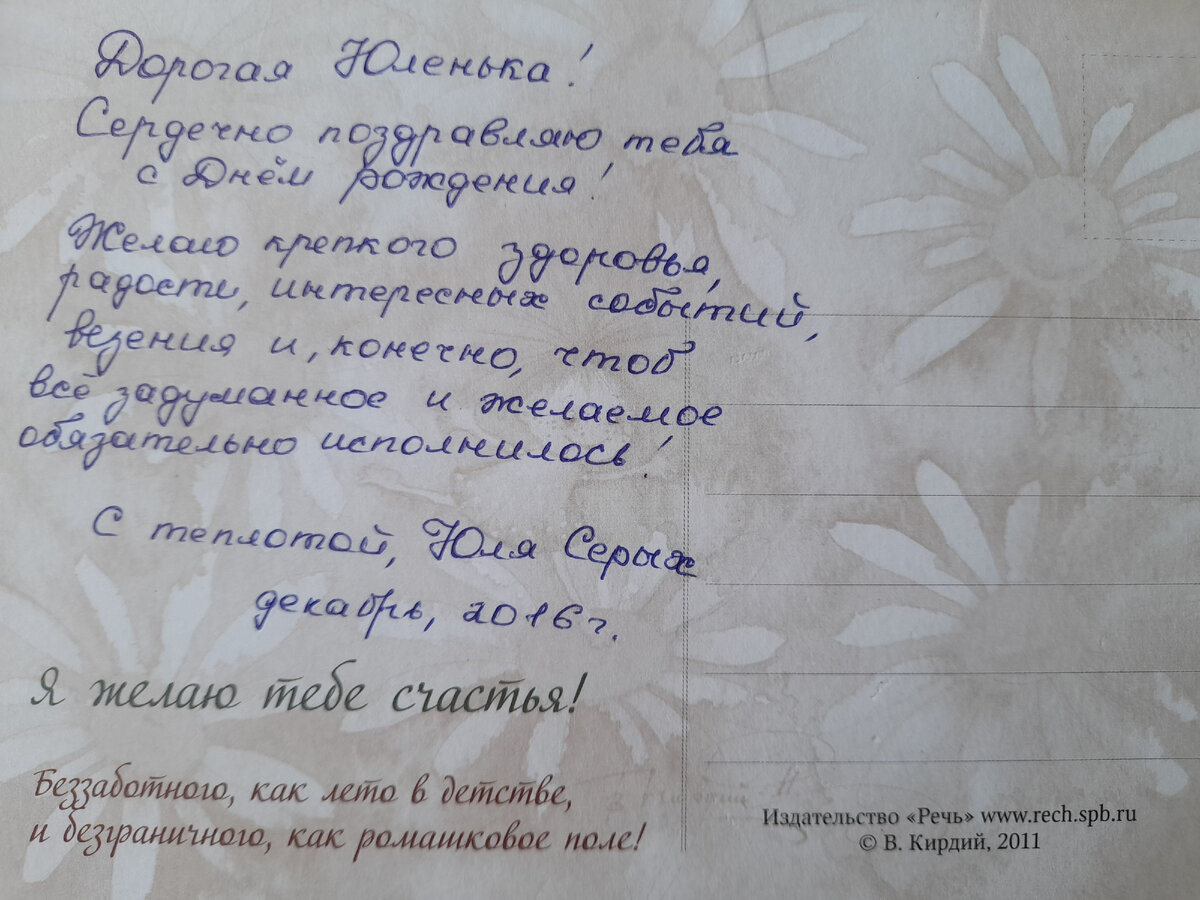 Дорогая Юленька!
Сердечно поздравляю тебя
с Днём рождения!
Желаю крепкого здоровья,
радости, интересных событий,
везения и, конечно, чтоб
всё задуманное и желаемое
обязательно исполнилось!
С теплотой, Юля Серых
декабрь, 2016г.
Я желаю тебе счастья!
Беззаботного, как лето в детстве,
и безграничного, как ромашковое поле!
Издательство «Речь» www.rech.spb.ru
© В. Кирдий, 2011